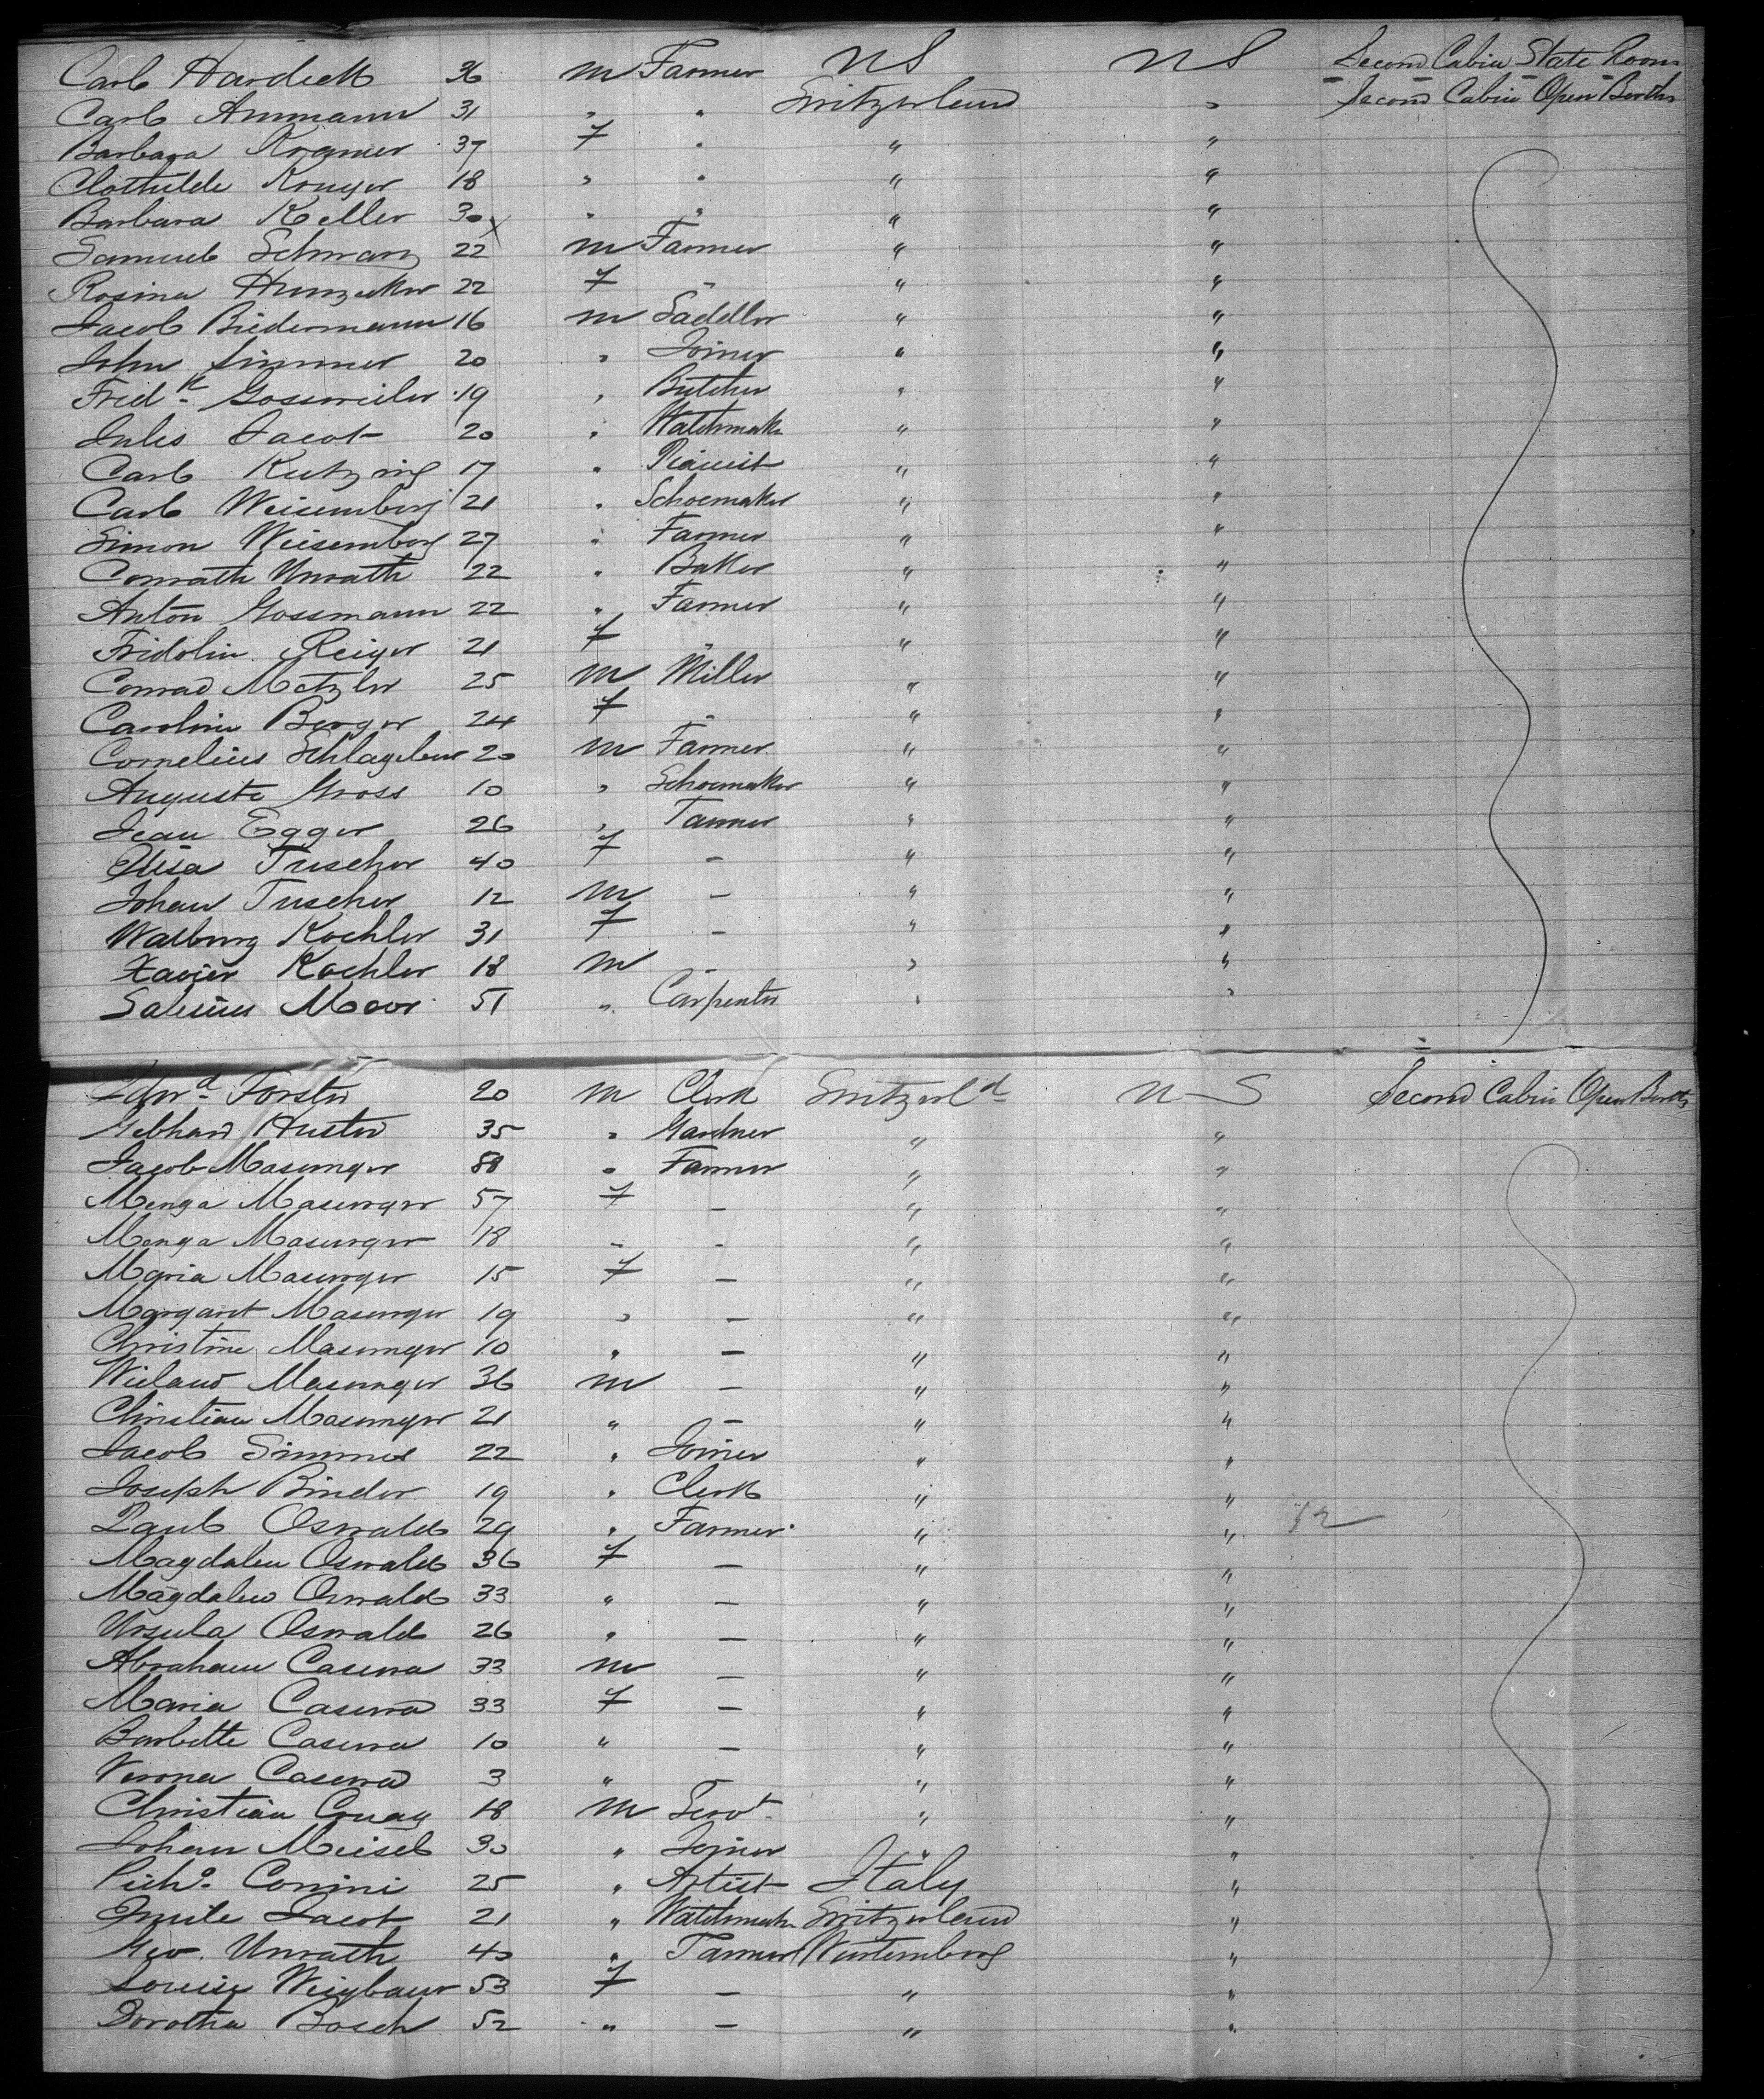 Carl Hardick 36 m Farmer US US Second Cabin State Room
Carl Ammann 31 " " Switzerland " Second Cabin Open Berths
Barbara Kramer 37 f " " "
Clothilde Kruger 18 " " " "
Barbara Keller 30 x " " " "
Samuel Schwarz 22 m Farmer " "
Rosina Hunzeker 22 f - " "
Jacob Biedermann 16 m Sadller " "
John Simmer 20 " Joiner " "
Fredk Gossweiler 19 " Butcher " "
Jules Jacot 20 " Watchmak " "
Carl Kutzing 17 " Pianist " "
Carl Weisemberg 21 " Schoemaker " "
Simon Weisemberg 27 " Farmer " "
Conrath Unrath 22 " Baker " "
Anton Gossmann 22 " Farmer " "
Fridolin Reiger 21 f - " "
Conrad Metzler 25 m Miller " "
Caroline Berger 24 f - " "
Cornelius 20 m Farmer " "
Auguste Gross 10 " Schoemaker " "
Jean Egger 26 " Tanner " "
Elisa Tuscher 40 f - " "
Johan Tuscher 12 m - " "
Walburg Kochler 31 f - " "
Xavier Kochler 18 m - " "
Moor 51 " Carpenter " "
Edwd Forster 20 m Clerk Switzerld U S Second Cabin Open Berths
Gebhard Huster 35 " Gardner " "
Jacob Masumger 58 " Farmer " "
Menga Masumger 57 f - " "
Menga Masumger 18 - - " "
Maria Masumger 15 f - " "
Margaret Masumger 19 " - " "
Christine Masumger 10 " - " "
Wieland Masumger 36 m - " "
Christian Masumger 21 " - " "
Jacob Simmer 22 " Joiner " "
Joseph Binder 19 " Clerk " "
Paul Oswald 29 " Farmer " " 12
Magdalen Oswald 36 f - " "
Magdalen Oswald 33 " - " "
Ursula Oswald 26 " - " "
Abraham Caserra 33 m - " "
Maria Caserra 33 f - " "
Barbette Caserra 10 " - " "
Verona Caserra 3 " - " "
Christian 18 m Servt " "
Johan Meisel 30 " Joiner " "
Conini 25 " Artist Italy "
Emile Jacot 21 " Watchmak Switzerland "
Geo. Unrath 40 " Farmer Wurtemberg "
Louise Weigbaur 53 f - " "
Dorothea Bosch 52 " - " "